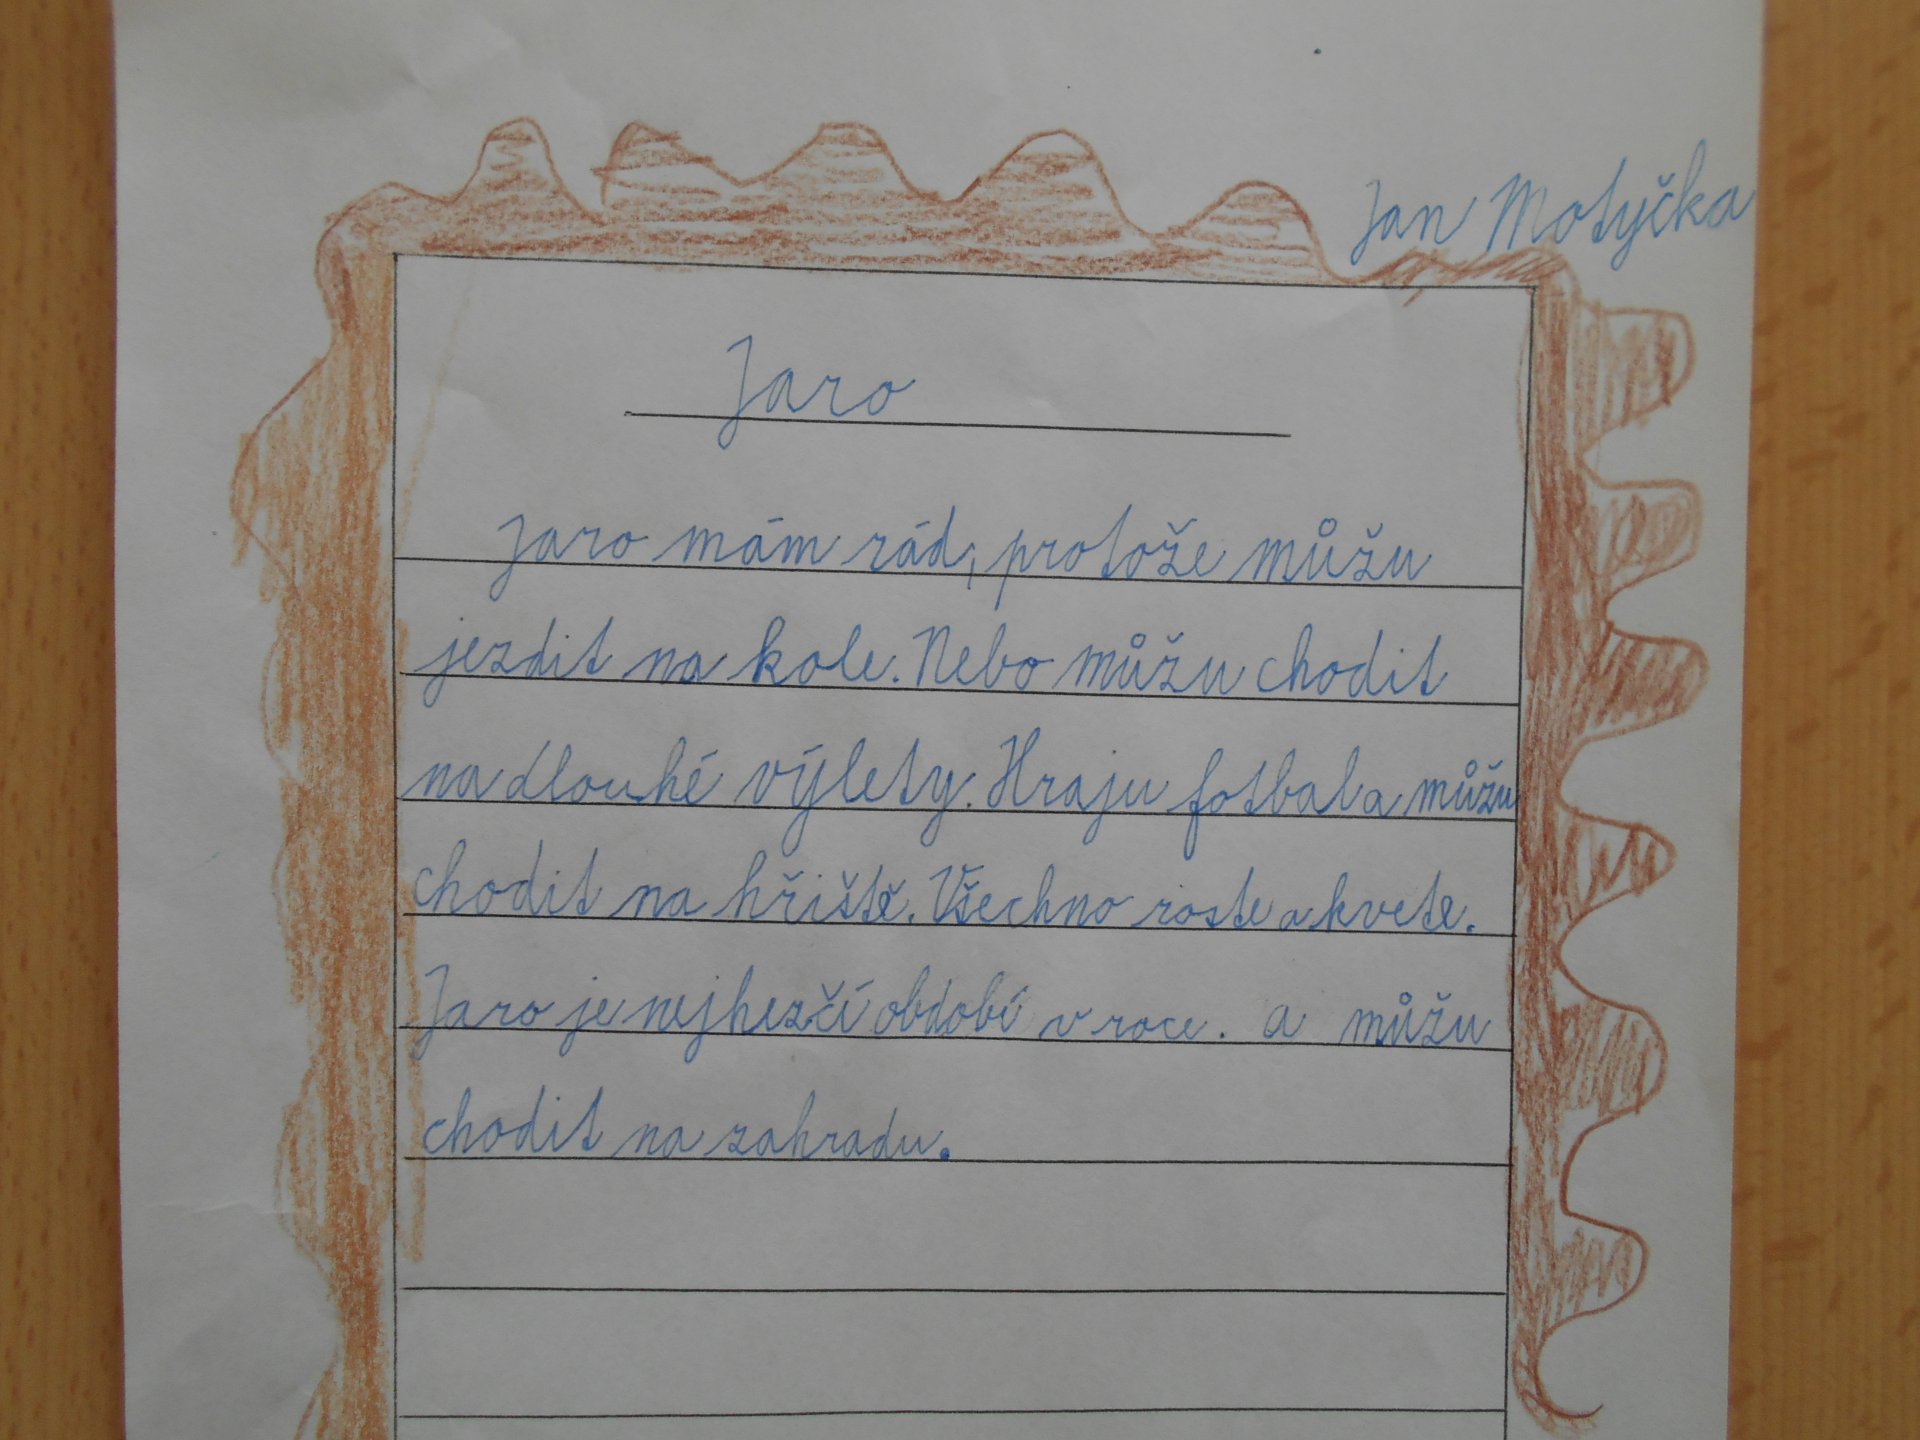 Jan Motyčka
Jaro
Jaro mám rád, protože můžu
jezdit na kole. Nebo můžu chodit
na dlouhé výlety. Hraju fotbal a můžu
chodit na hřiště. Všechno roste a kvete.
Jaro je nejhezčí období v roce. a můžu
chodit na zahradu.